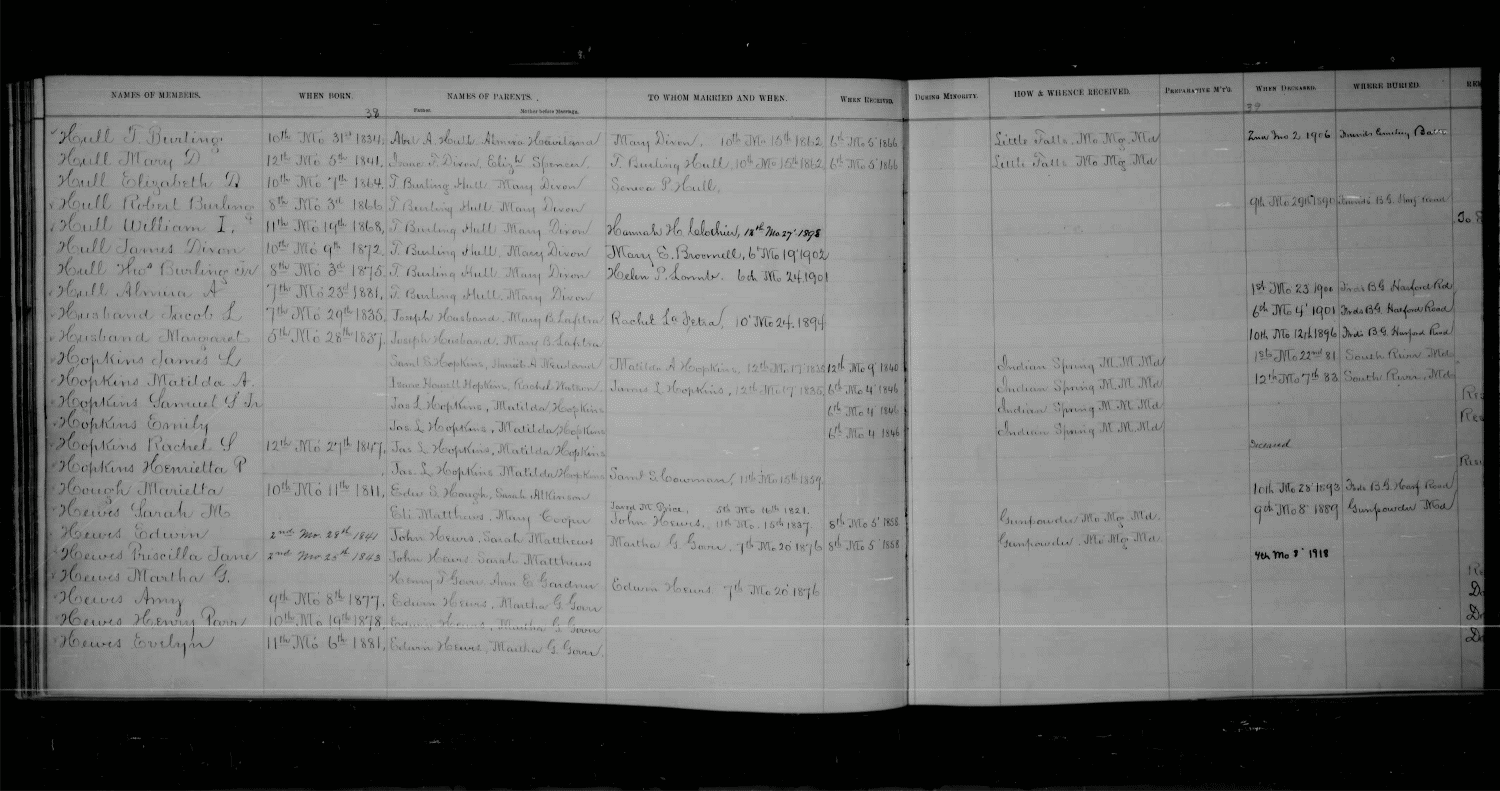 NAMES OF MEMBERS. WHEN BORN. NAMES OF PARENTS. TO WHOM MARRIED AND WHEN. WHEN RECEIVED. DURING MINORITY. HOW & WHENCE RECEIVED. PREPARATIVE M'T'G. WHEN DECEASED. WHERE BURIED.
38 Father. Mother before Marriage. 39
Hull T. Burling 10th Mo 31st 1834, Abel A. Hull, Almira Haviland Mary Dixon, 10th Mo 15th 1862 6th Mo 5' 1866 Little Falls, Mo Mg, Md 2nd mo 2 1906 Friends Cemetery Balto
Hull Mary D 12th Mo 5th 1841, Isaac F. Dixon, Elizth Spencer, T. Burling Hull, 10th Mo 15th 1862 6th Mo 5' 1866 Little Falls Mo Mg Md
Hull Elizabeth D 10th Mo 7th 1864, T Burling Hull Mary Dixon Seneca P. Hull,
Hull Robert Burling 8th Mo 3rd 1866 T Burling Hull Mary Dixon 9th Mo 29th 1890 Friends B.G. Harf Road
Hull William I. 11th Mo 19th 1868, T Burling Hull Mary Dixon Hannah H. Clothier, 12th Mo 27' 1898 To
Hull James Dixon 10th Mo 9th 1872, T Burling Hull, Mary Dixon Mary E. Broomell, 6' Mo 19' 1902
Hull Thos Burling Jr 8th Mo 3rd 1875, T. Burling Hull Mary Dixon Helen P. Lamb. 6th Mo 24. 1901
Hull Almira A 7th Mo 23rd 1881, T Burling Hull Mary Dixon 1st Mo 23 1900 Frds B.G. Harford Rd
Husband Jacob L 7th Mo 29th 1835, Joseph Husband, Mary B. Lafetra Rachel La Fetra, 10' Mo 24. 1894 6th Mo 4' 1901 Frds B.G. Harford Road
Husband Margaret 5th Mo 28th 1837, Joseph Husband, Mary B. Lafetra 10th Mo 12th 1896 Frds B.G. Harford Road
Hopkins James L Saml S Hopkins, Newland Matilda A Hopkins, 12th Mo 17' 1835 12th Mo 9' 1840 Indian Spring M.M. Md 1st Mo 22nd 81 South River Md
Hopkins Matilda A. Isaac Howell Hopkins Rachel Watson. James L Hopkins, 12th Mo 17 1835, 6th Mo 4' 1846 Indian Spring M.M. Md 12th Mo 7th 83 South River, Md
Hopkins Samuel S Jr Jas L Hopkins, Matilda Hopkins 6th Mo 4' 1846 Indian Spring M M. Md
Hopkins Emily Jas L Hopkins, Matilda Hopkins 6th Mo 4 1846 Indian Spring M M. Md
Hopkins Rachel S 12th Mo 27th 1847, Jas L Hopkins, Matilda Hopkins Deceased
Hopkins Henrietta P Jas. L Hopkins Matilda Hopkins Saml S. Cowman, 11th Mo 15th 1859.
Hough Marietta 10th Mo 11th 1811, Edw S. Hough, Sarah Atkinson 10th Mo 28' 1893 Frds B.G. Harf Road
Hewes Sarah M Eli Matthews, Mary Cooper Jared M. Price, 5th Mo 16th 1821. John Hewes, 11th Mo. 15th 1837. 8th Mo 5' 1858 Gunpowder Mo Mg Md. 9th Mo 8' 1889 Gunpowder Md
Hewes Edwin 2nd Mo. 28th 1841 John Hewes, Sarah Matthews Martha G Gover, 7th Mo 20' 1876 8th Mo 5' 1858 Gunpowder, Mo Mg Md.
Hewes Priscilla Jane 2nd Mo 25th 1843 John Hewes Sarah Matthews 4th Mo 8' 1918
Hewes Martha G. Henry T Gover Ann E Gardner Edwin Hewes 7th Mo 20' 1876
Hewes Amy 9th Mo 8th 1877, Edwin Hewes, Martha G. Gover
Hewes Henry Parr 10th Mo 19th 1878, Edwin Hewes, Martha G Gover
Hewes Evelyn 11th Mo 6th 1881, Edwin Hewes, Martha G. Gover.